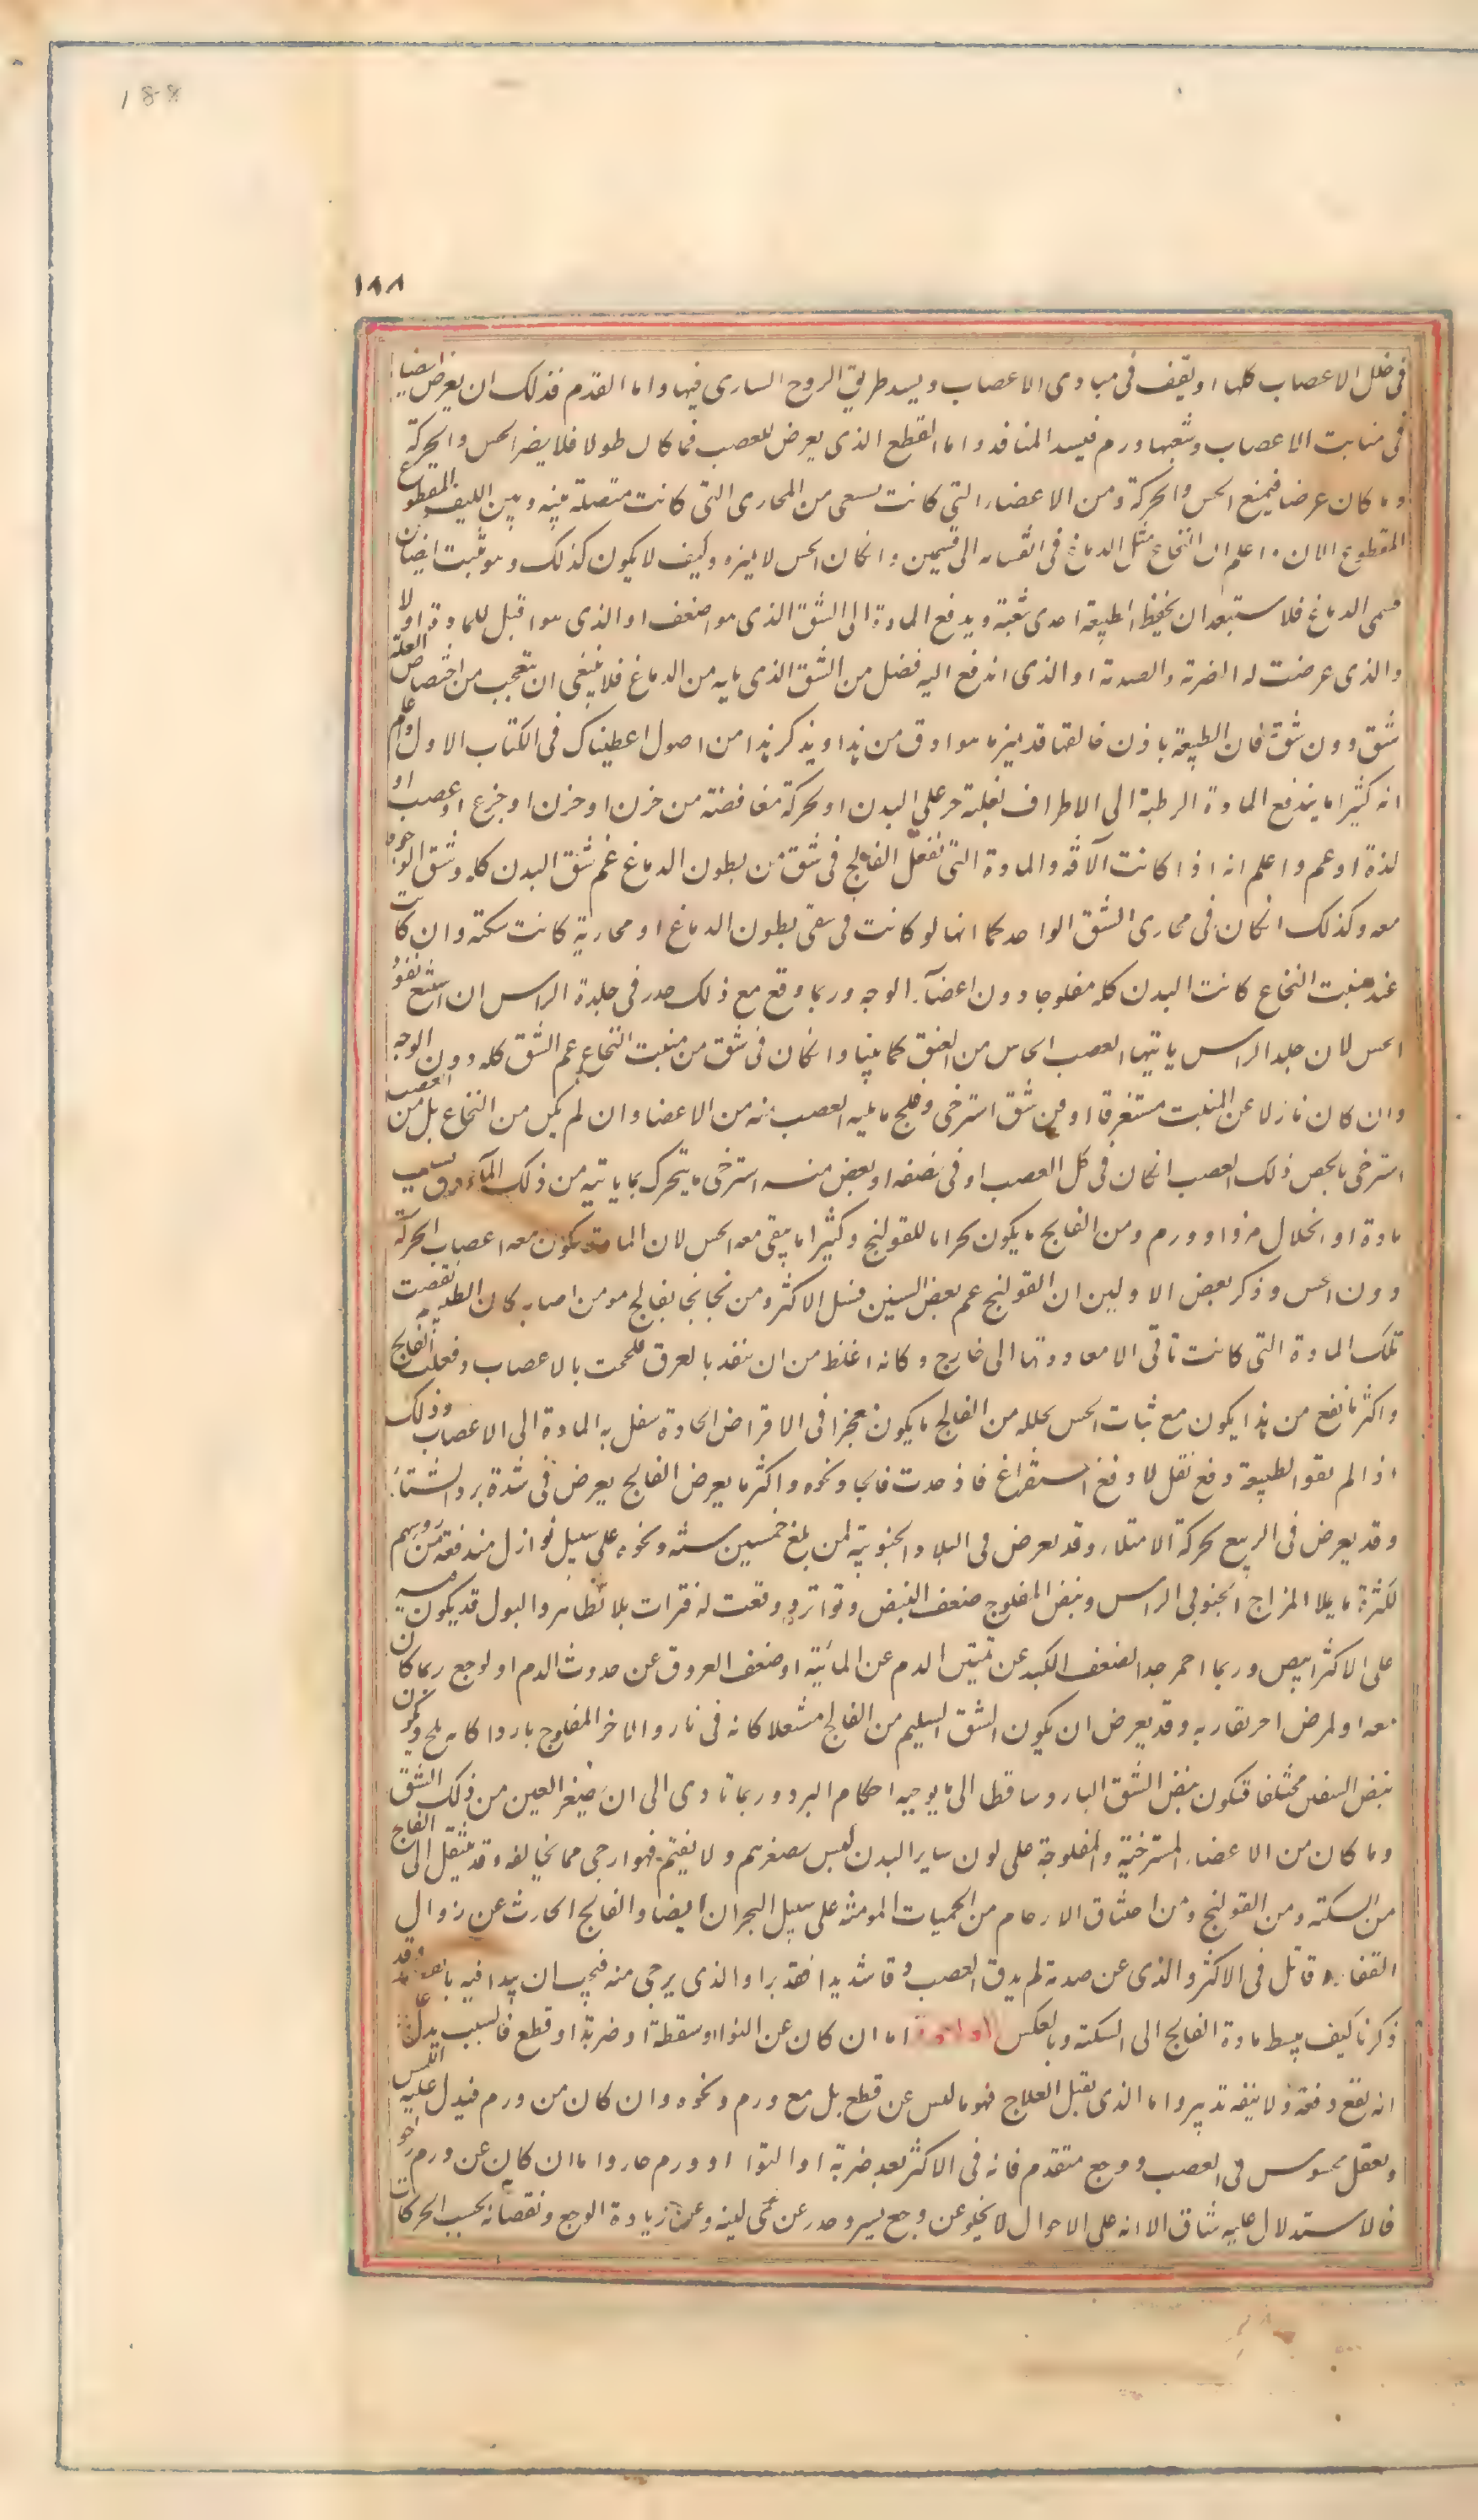 188
١٨٨
فى خلل الاعصاب كلها او تقف فى مبادى الاعصاب ويسد طريق الروح السارى فيها واما القدم فذلك ان يعرض ايضا
فى منابت الاعصاب وشعبها ورم فيسد المنافذ واما القطع الذى يعرض للعصب فما كان طولا فلا يضر الحس والحركة
وما كان عرضا فيمنع الحس والحركة ومن الاعضاء التى كانت تسعى من المجارى التى كانت متصلة بينه وبين الليف المقطوع
المقطوع الان واعلم ان النخاع مثل الدماغ فى انقسامه الى قسمين وان كان الحس لا يميزه وكيف لا يكون كذلك وهو ينبت ايضا من
قسمى الدماغ فلا يستبعد ان يحفظ الطبيعة احدى شعبه ويدفع المادة الى الشق الذى هو اضعف او الذى هو اقبل للمادة اولا
والذى عرضت له الضربة والصدمة او الذى اندفع اليه فضل من الشق الذى يليه من الدماغ فلا ينبغى ان يتعجب من اختصاص العلة
بشق دون شق فان الطبيعة باذن خالقها قد يميز ما هو ادق من هذا ويذكر هذا من اصول اعطيناك فى الكتاب الاول واعلم
انه كثيرا ما يندفع المادة الرطبة الى الاطراف لغلبة حر على البدن او لحركة مغافصة من خزن او حزن او جزع او غضب او
لذة او غم واعلم انه اذا كانت الآفه والمادة التى تفعل الفالج فى شق من بطون الدماغ عم شق البدن كله وشق الوجه
معه وكذلك ان كان فى مجارى الشق الواحد كما انها لو كانت فى شقى بطون الدماغ او مجاريه كانت سكتة وان كانت
عند منبت النخاع كانت البدن كله مفلوجا دون اعضاء الوجه وربما وقع مع ذلك خدر فى جلدة الراس ان امتنع نفوذ
الحس لان جلد الراس ياتيها العصب الحاس من العنق كما بينا وان كان فى شق من منبت النخاع عم الشق كله دون الوجه
وان كان نازلا عن المنبت مستغرقا او فى شق استرخى وفلج ما يليه العصب منه من الاعضا وان لم يكن من النخاع بل من العصب
استرخى ما يخص ذلك العصب ان كان فى كل العصب او فى نصفه او بعض منه استرخى ما يتحرك بما ياتيه من ذلك بسبب
مادة او انحلال فرد او ورم ومن الفالج ما يكون بحرانا للقولنج وكثيرا ما يبقى معه الحس لان المادة تكون معه اعصاب الحركة
دون الحس وذكر بعض الاولين ان القولنج عم بعض السنين فقتل الاكثر ومن نجا نجا بفالج مزمن اصابه كان الطبيعة نفضت
تلك المادة التى كانت تاتى الامعا وردتها الى خارج وكانه اغلظ من ان ينفذ بالعرق فلحجت بالاعصاب وفعلت الفالج
واكثر ما نفع من هذا يكون مع ثبات الحس بحاله من الفالج ما يكون فى الامراض الحادة ينتقل به المادة الى الاعصاب وذلك
اذا لم يقو الطبيعة دفع ثقل لا دفع استفراغ فاذ حدث فالجا ونحوه واكثر ما يعرض الفالج يعرض فى شدة برد الشتاء
وقد يعرض فى الربيع لحركة الامتلاء وقد يعرض فى البلاد الجنوبيه لمن بلغ خمسين سنة ونحوه على سبيل نوازل مندفعة من رؤسهم
لكثرة ما يملا المزاج الجنوبى الراس ونبض المفلوج ضعف النبض وتواتر ووقعت له فترات بلا نظام والبول قد يكون فيه
على الاكثر ابيض وربما احمر جدا لضعف الكبد عن تميز الدم عن المائية او ضعف العروق عن جذب الدم او لوجع ربما كان
معه او لمرض اخر يقارنه وقد يعرض ان يكون الشق السليم من الفالج مشتعلا كانه فى نار والاخر المفلوج باردا كانه ثلج ويكون
نبض الشقين مختلفا فيكون نبض الشق البارد ساقطا الى ما يوجبه احكام البرد وربما تادى الى ان يصغر العين من ذلك الشق
وما كان من الاعضاء المسترخية والمفلوجة على لون ساير البدن ليس بصغر ولا يتغير فهو ارجى مما يخالفه وقد ينتقل الى الفالج
من السكته ومن القولنج ومن اختناق الارحام من الحميات المزمنة على سبيل البحران ايضا والفالج الحادث عن زوال
الفقار قاتل فى الاكثر والذى عن صدمة لم يدق العصب دقا شديدا فقد يبرا والذى يرجى منه فيجب ان يبدا فيه وقد
ذكرنا كيف ينبسط مادة الفالج الى السكته وبالعكس اما ان كان عن التواء او سقطة او ضربة او قطع فالسبب يدل على
انه يقع دفعة ولا ينفعه تدبير واما الذى يقبل العلاج فهو ما ليس عن قطع بل مع ورم ونحوه وان كان من ورم فيدل عليه اللمس
وثقل محسوس فى العصب ووجع متقدم فانه فى الاكثر بعد ضربة او التوا او ورم حار واما ان كان عن ورم رخو
فالاستدلال عليه شاق الا انه على الاحوال لا يخلو عن وجع يسير وخدر عن حمى لينه وعن زيادة الوجع ونقصانه بحسب الحركات